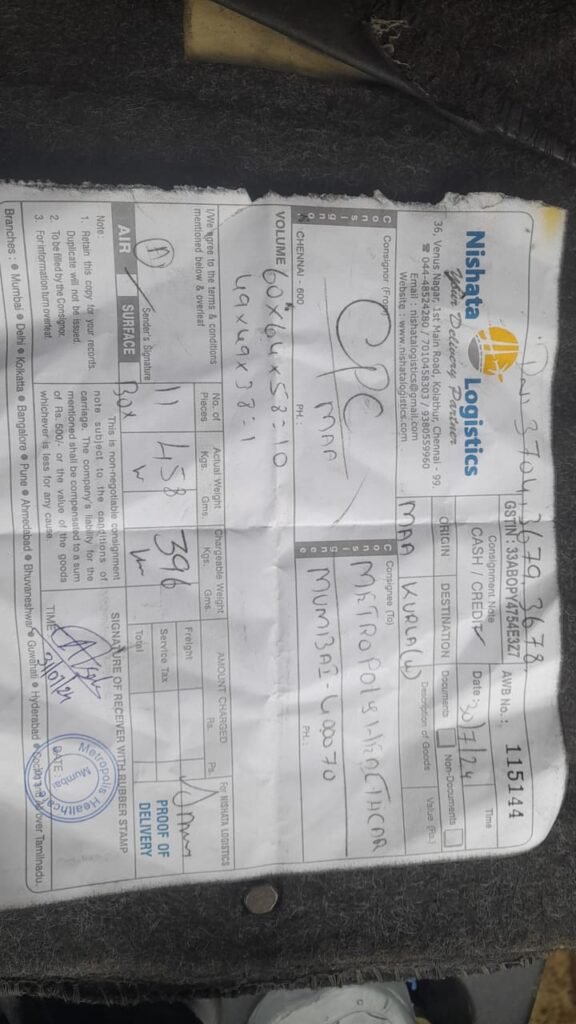 3704, 3679, 3678
Nishata Logistics
Your Delivery Partner
36, Venus Nagar, 1st Main Road, Kolathur, Chennai - 99.
☎ 044-48524280 / 7010458303 / 9380559960
Email : nishatalogistics@gmail.com
Website : www.nishatalogistics.com
GSTIN : 33ABOPY4754E3Z7
AWB No.: 115144
Consignment Note
CASH / CREDIT
Date 30/7/24
Time
ORIGIN
DESTINATION
Documents
Non-Documents
MAA
KURLA (W)
Description of Goods
Value (Rs.)
Consignor
Consignor (From)
CPC
MAA
CHENNAI - 600
PH :
Consignee
Consignee (To)
METROPOLIS HEALTHCAR
MUMBAI - 400070
PH :
VOLUME 60x64x58=10
49x49x38=1
I/We agree to the terms & conditions
mentioned below & overleaf
Sender's Signature
No. of
Pieces
11
Box
Actual Weight
Kgs. Gms.
458
Chargeable Weight
Kgs. Gms.
396
AMOUNT CHARGED
Rs. Ps.
Freight
Service Tax
Total
For NISHATA LOGISTICS
PROOF OF
DELIVERY
AIR
SURFACE
Note :
1. Retain this copy for your records.
Duplicate will not be issued.
2. To be filled by the Consignor.
3. For information turn overleaf.
This is non-negotiable consignment
note subject to the conditions of
carriage. The company's liability for the
mentioned shall be compensated to a sum
of Rs. 500/- or the value of the goods
whichever is less for any cause.
SIGNATURE OF RECEIVER WITH RUBBER STAMP
TIME
31/07/24
DATE
Metropolis Healthcare
Mumbai
Branches : ● Mumbai ● Delhi ● Kolkatta ● Bangalore ● Pune ● Ahmedabad ● Bhuvaneshwar ● Guwahati ● Hyderabad ● Cochin & all over Tamilnadu.